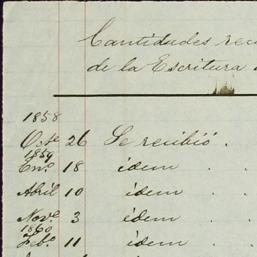 Cantidades
de la Escritura
1858
Oct.e 26 Se recibió .
1859
En.o 18 idem .
Abril 10 idem .
Nov.e 3 idem .
1860
Feb.o 11 idem .